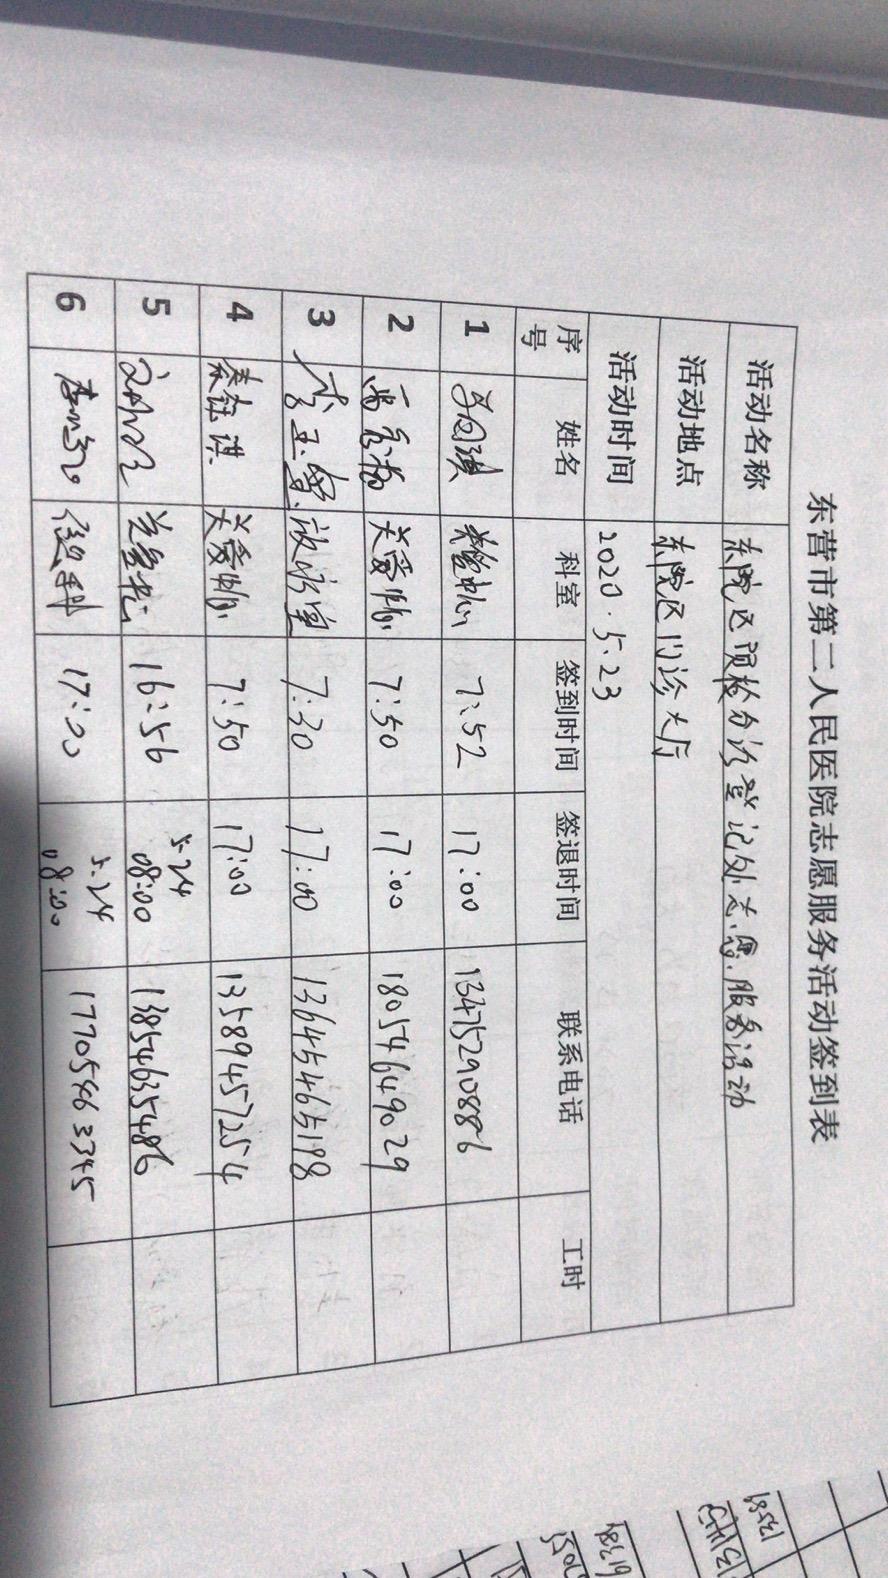 东营市第二人民医院志愿服务活动签到表
活动名称 东院区预检分诊登记处志愿服务活动
活动地点 东院区门诊大厅
活动时间 2020.5.23
序号 姓名 科室 签到时间 签退时间 联系电话 工时
1 7:52 17:00 13475290886
2 关爱 7:50 17:00 18054649029
3 7:30 17:00 13645465198
4 秦钰淇 关爱 7:50 17:00 13589457254
5 16:56 5.24 08:00 13854635486
6 17:00 5.24 08:00 17705463345